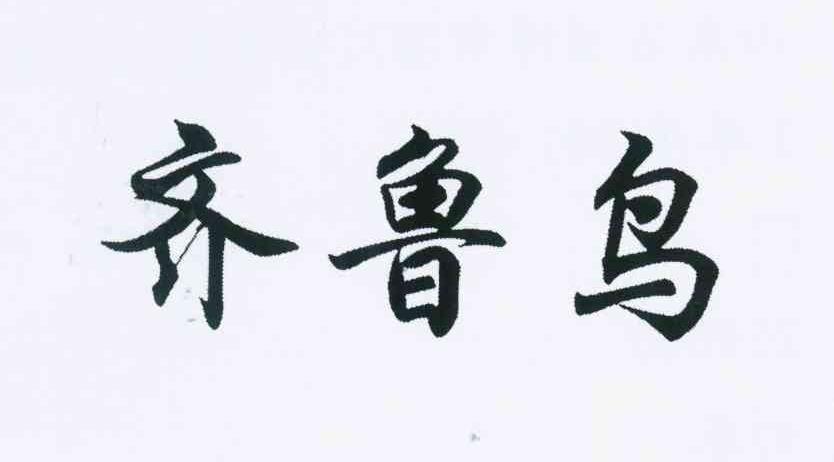 齐鲁鸟